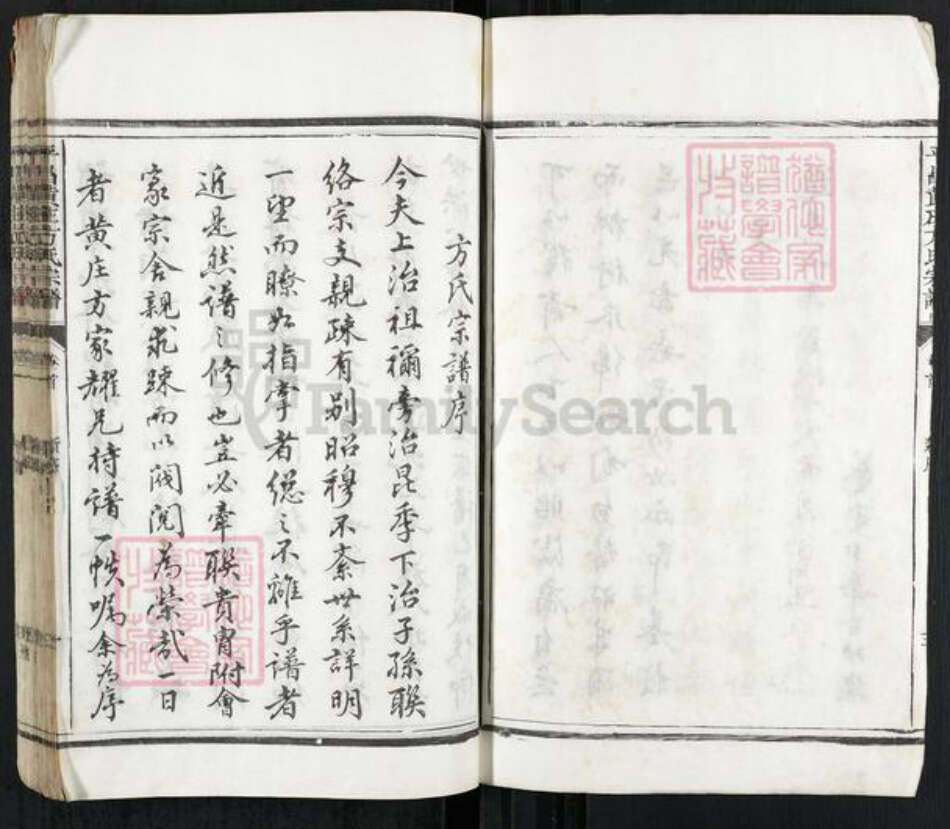 方氏宗譜序
今夫上治祖禰旁治昆季下治子孫聯
絡宗支親疎有别昭穆不紊世系詳明
一望而瞭如指掌者總之不離乎譜者
近是然譜之修也豈必牽聯貴胄附會
豪宗舍親求踈而以閥閱為榮哉一日
者黄庄方家耀兄持譜一帙嘱余為序
方氏宗譜
卷首
FamilySearch
譜學會
收藏